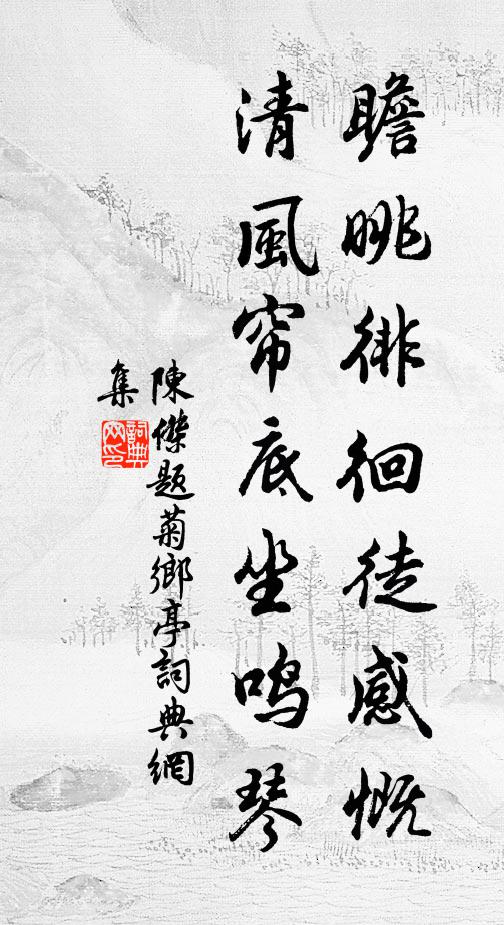 瞻眺徘徊徒感慨
清風帘底坐鸣琴
陳傑題菊鄉亭詞典網
集
詞典
网印